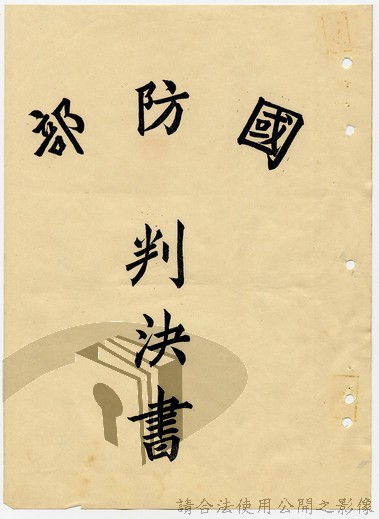 國防部
判決書
請合法使用公開之影像